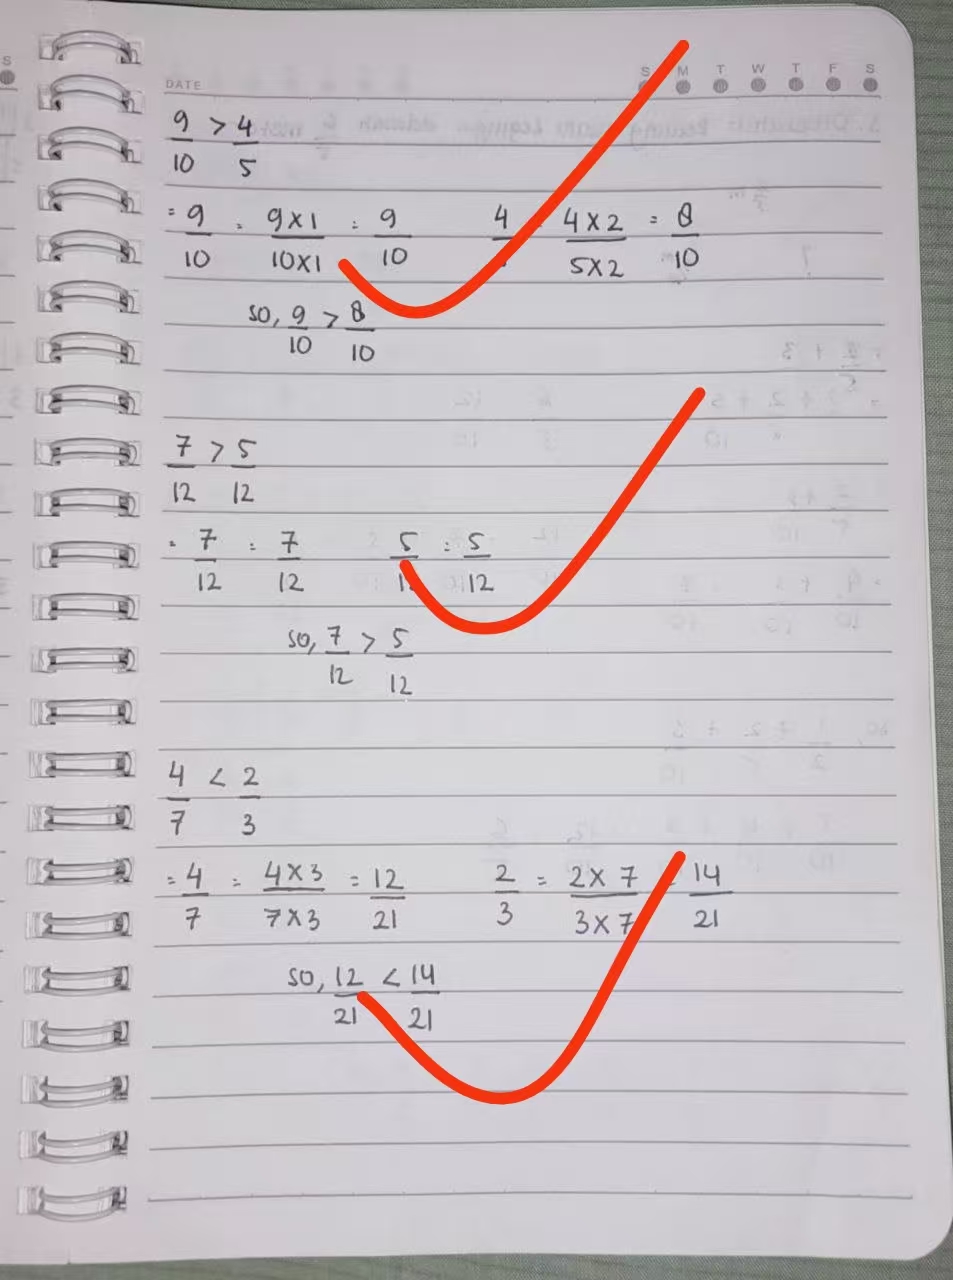 S M T W T F S
DATE
9/10 > 4/5
= 9/10 = 9×1/10×1 = 9/10 4/ = 4×2/5×2 = 8/10
so, 9/10 > 8/10
7/12 > 5/12
= 7/12 = 7/12 5/1 = 5/12
so, 7/12 > 5/12
4/7 < 2/3
= 4/7 = 4×3/7×3 = 12/21 2/3 = 2×7/3×7 = 14/21
so, 12/21 < 14/21